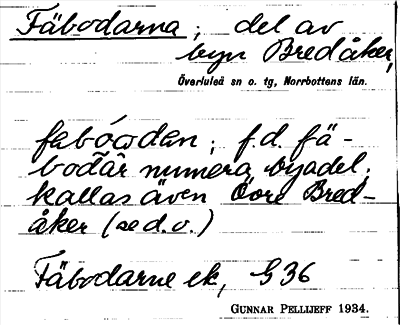 Fäbodarna; del av
byn Bredåker,
Överluleå sn o. tg, Norrbottens län.
f.d. fä-
bodar numera byadel.
kallas även Övre Bred-
åker (se d.o.)
Fäbodarne ek, G 36
GUNNAR PELLIJEFF 1934.